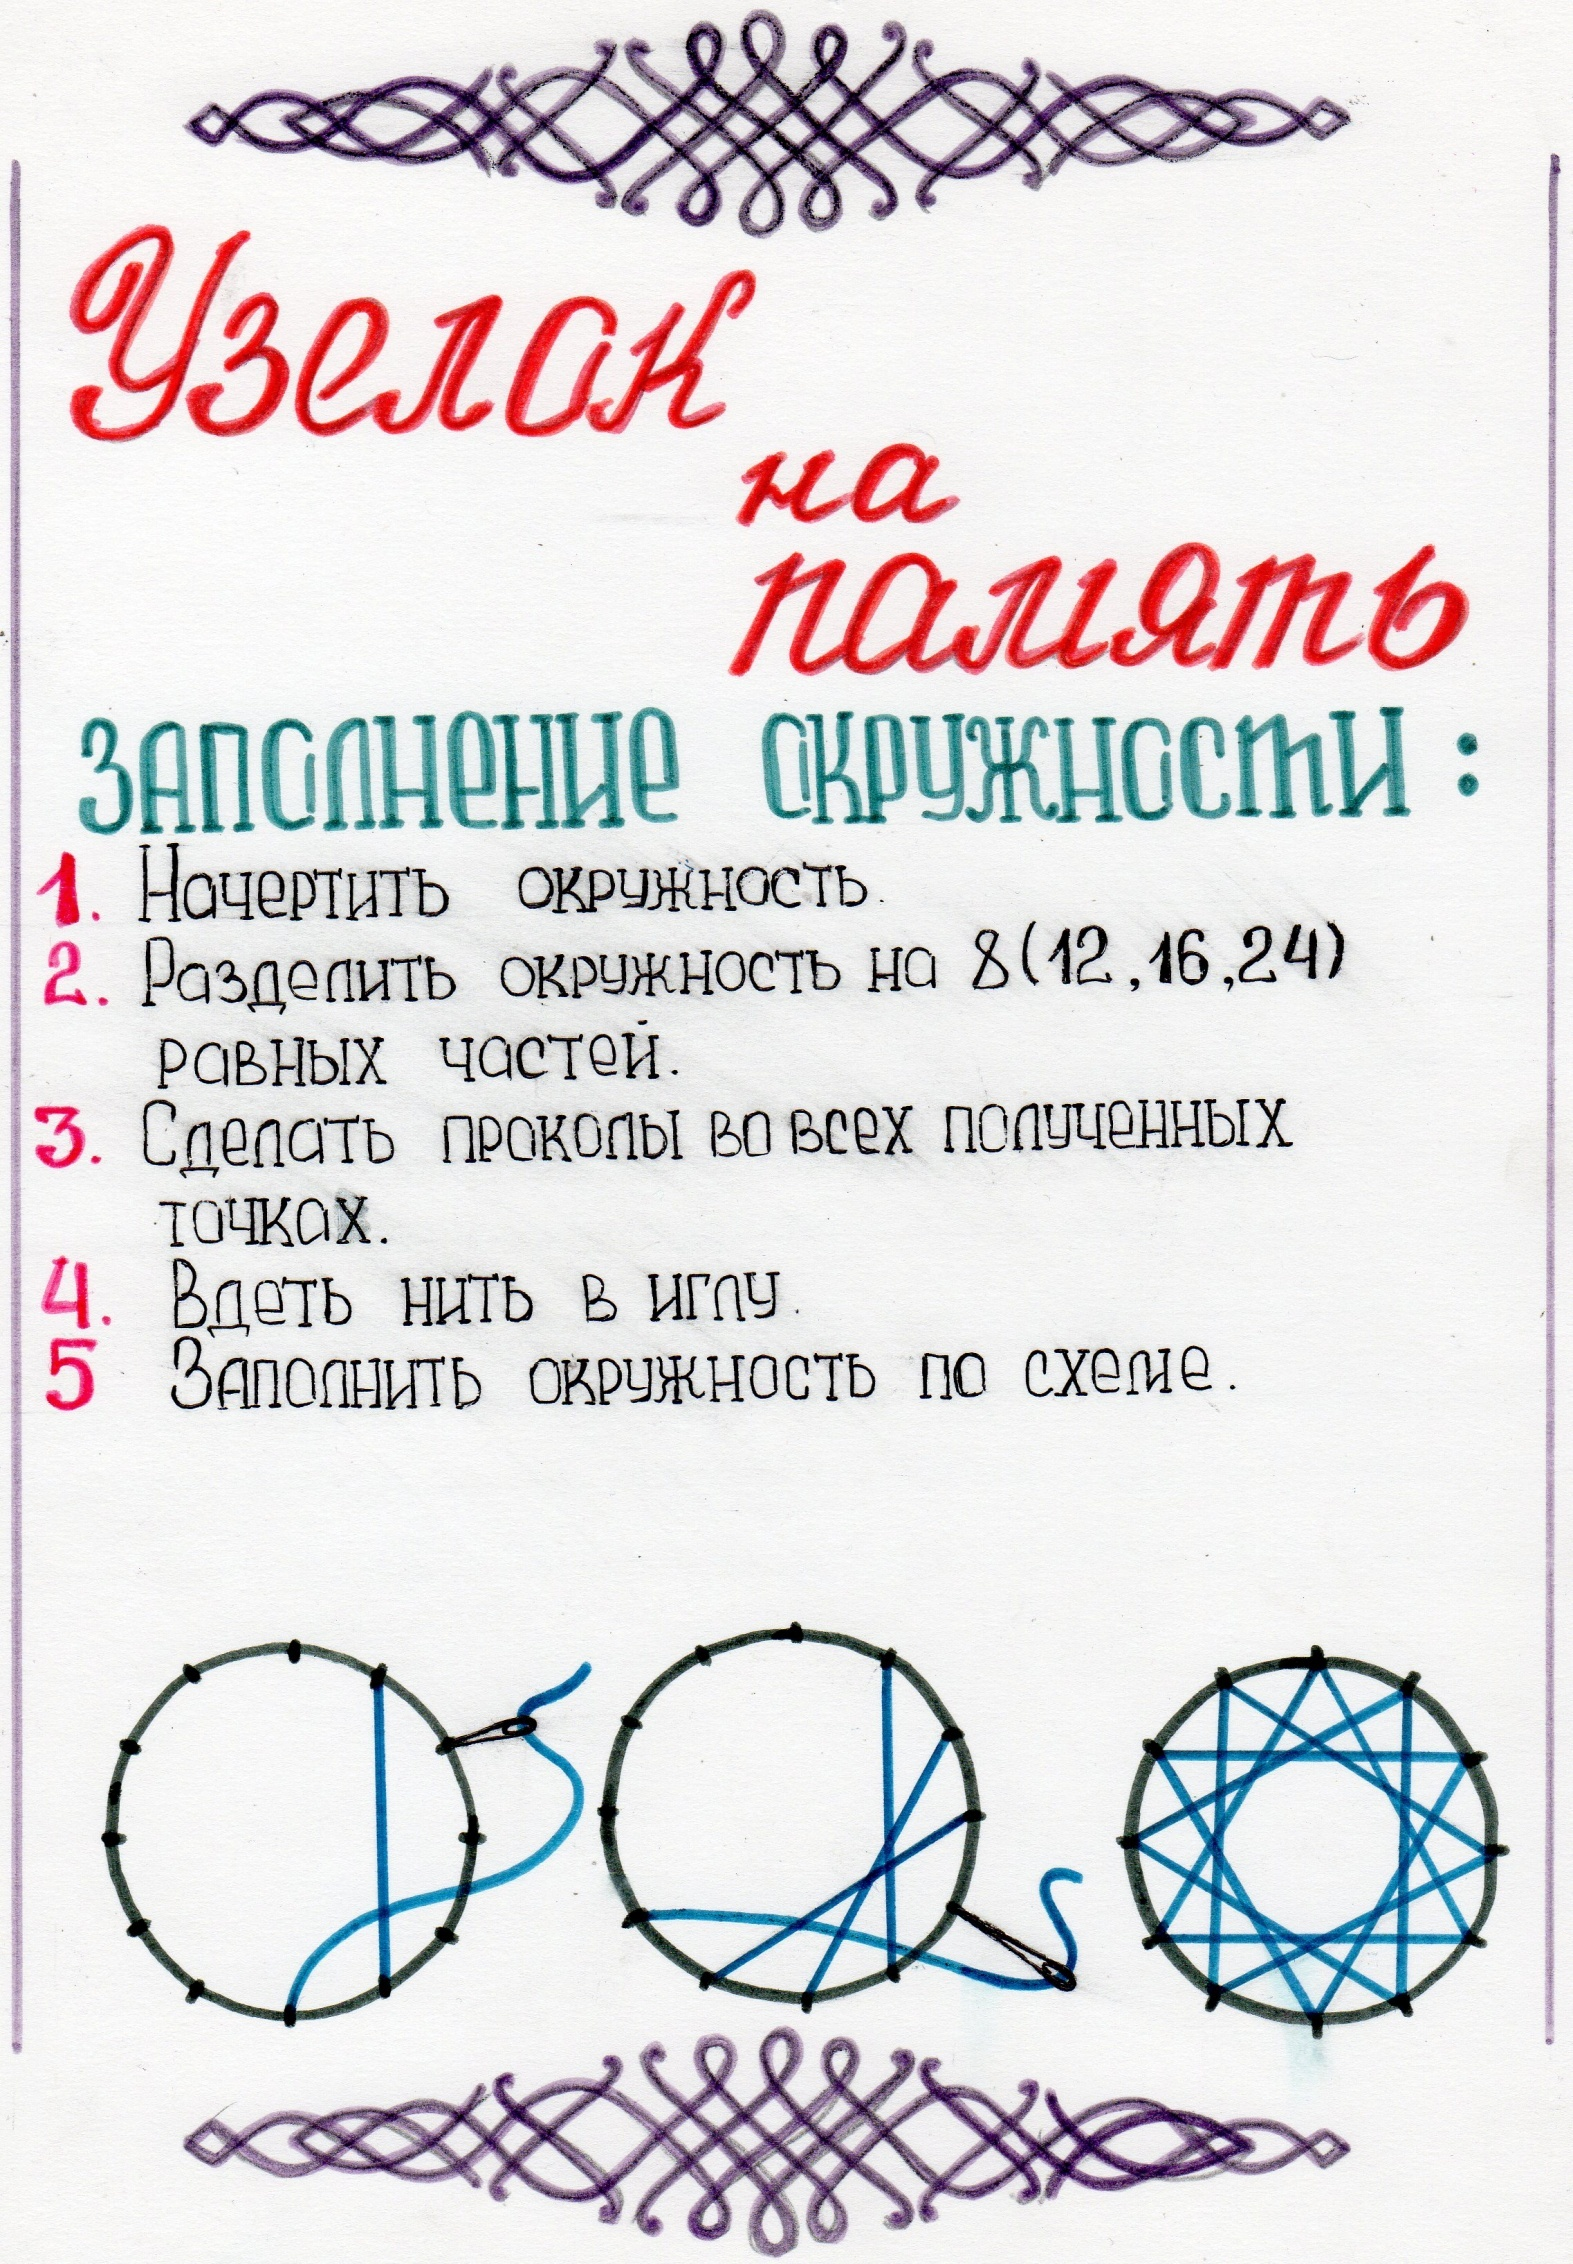 Узелок
на
память
ЗАПОЛНЕНИЕ ОКРУЖНОСТИ:
1. Начертить окружность.
2. Разделить окружность на 8(12,16,24)
равных частей.
3. Сделать проколы во всех полученных
точках.
4. Вдеть нить в иглу.
5 Заполнить окружность по схеме.